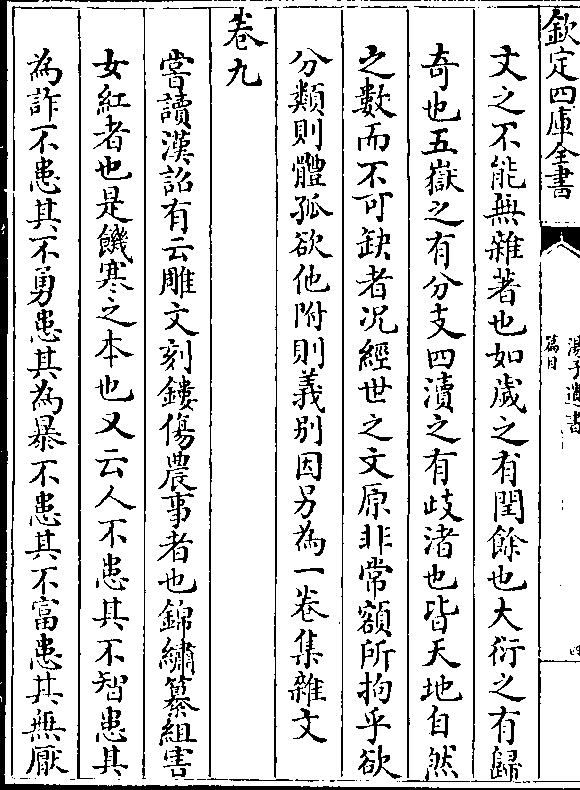 欽定四庫全書
湯子遺書
篇目
四
文之不能無雜著也如歲之有閏餘也大衍之有歸
奇也五嶽之有分支四瀆之有歧渚也皆天地自然
之數而不可缺者況經世之文原非常額所拘乎欲
分類則體孤欲他附則義別因另為一卷集雜文
卷九
嘗讀漢詔有云雕文刻鏤傷農事者也錦繡纂組害
女紅者也是饑寒之本也又云人不患其不智患其
為詐不患其不勇患其為暴不患其不富患其無厭